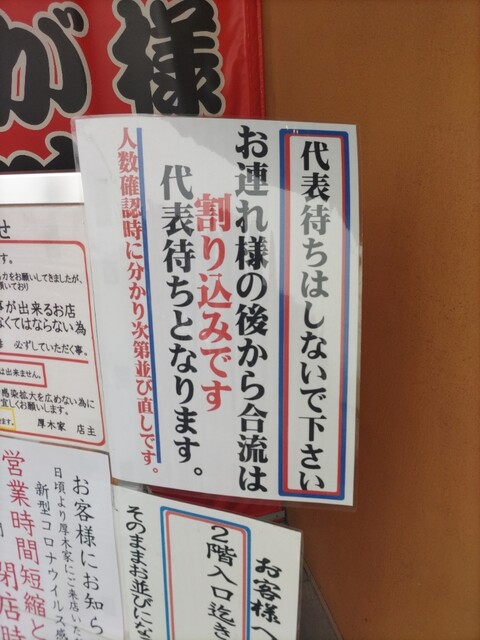 が様
代表待ちはしないで下さい
お連れ様の後から合流は
割り込みです
代表待ちとなります。
人数確認時に分かり次第並び直しです。
せ
す。
力をお願いしてきましたが、
頂いており
事が出来るお店
なくてはならない為
必ずしていただく事。
は出来ません。
感染拡大を広めない為に
宜しくお願いします。
厚木家 店主
お客様にお知ら
日頃より厚木家にご来店いた
新型コロナウイルス感
営業時間短縮と
閉店時
お客様へ
2階入口迄き
そのままお並びにな